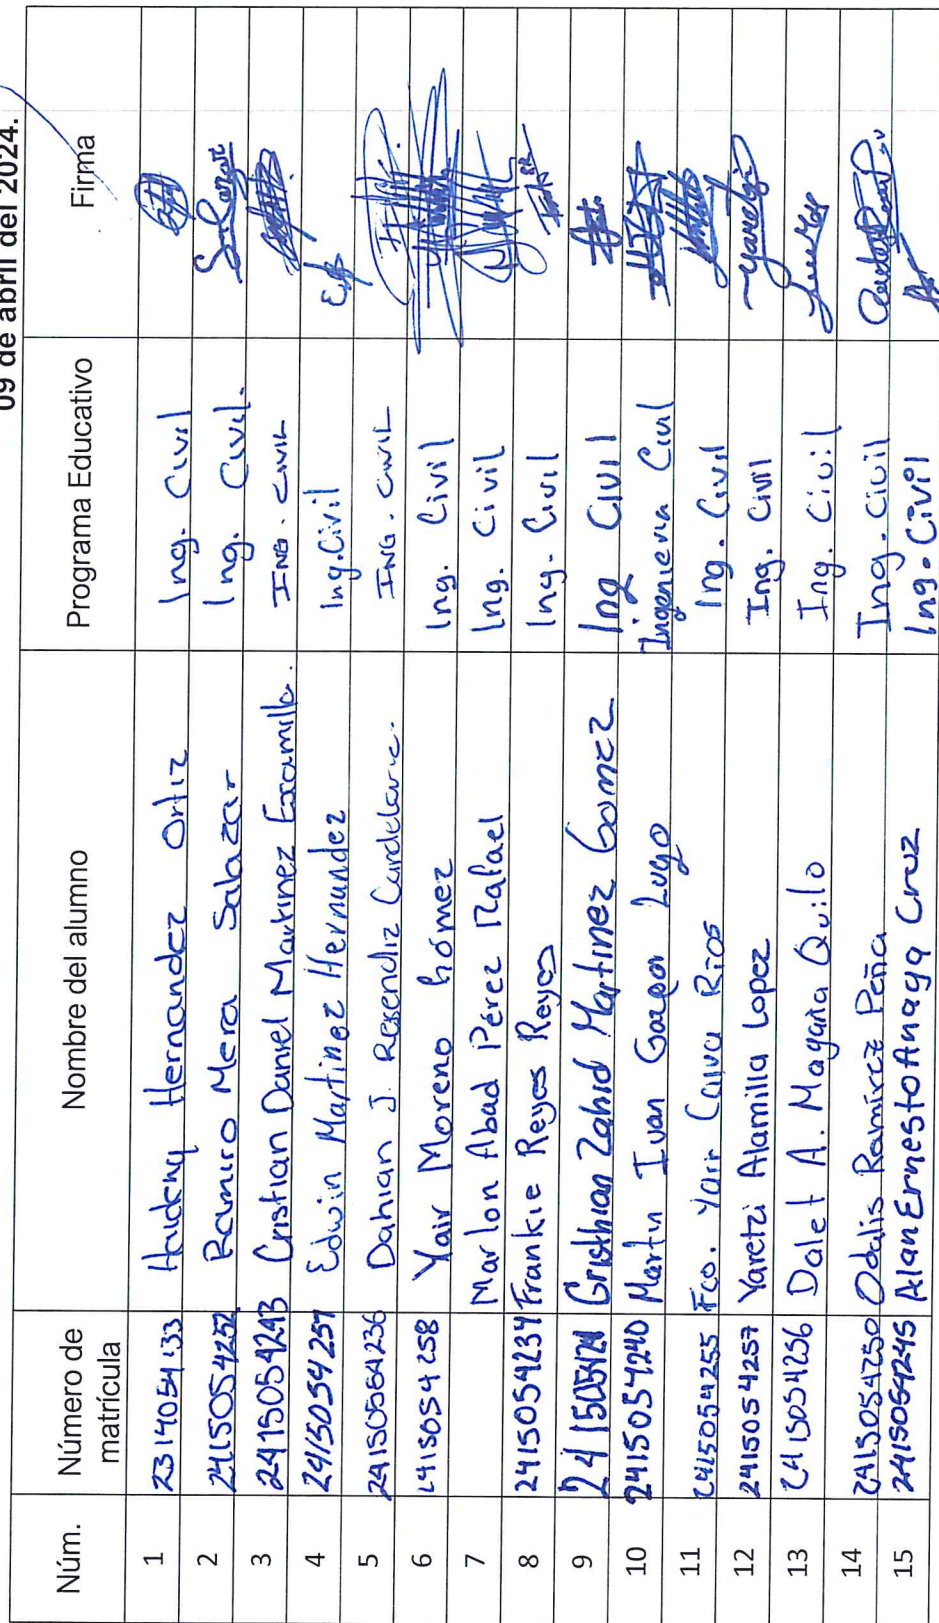 09 de abril del 2024.
Núm. Número de matrícula Nombre del alumno Programa Educativo Firma
1 2314054133 Hernandez Ortiz Ing. Civil
2 2415054252 Ramiro Mera Salazar Ing. Civil.
3 2415054243 Cristian Daniel Martinez Ing. Civil
4 Edwin Martinez Hernandez Ing. Civil
5 2415054236 Dahian J. Resendiz Ing. Civil
6 2415054258 Yair Moreno Gómez Ing. Civil
7 Marlon Abad Pérez Rafael Ing. Civil
8 2415054234 Frankie Reyes Reyes Ing. Civil
9 Zahid Martinez Gomez Ing Civil
10 2415054240 Martin Ivan Lugo Ingenieria Civil
11 2415054255 Fco. Yair Calva Rios Ing. Civil
12 2415054257 Yaretzi Alamilla Lopez Ing. Civil Yaretzi
13 2415054256 Dalet A. Magaña Quilo Ing. Civil
14 2415054250 Odalis Ramírez Peña Ing. Civil
15 2415054245 Alan Ernesto Anaya Cruz Ing. Civil